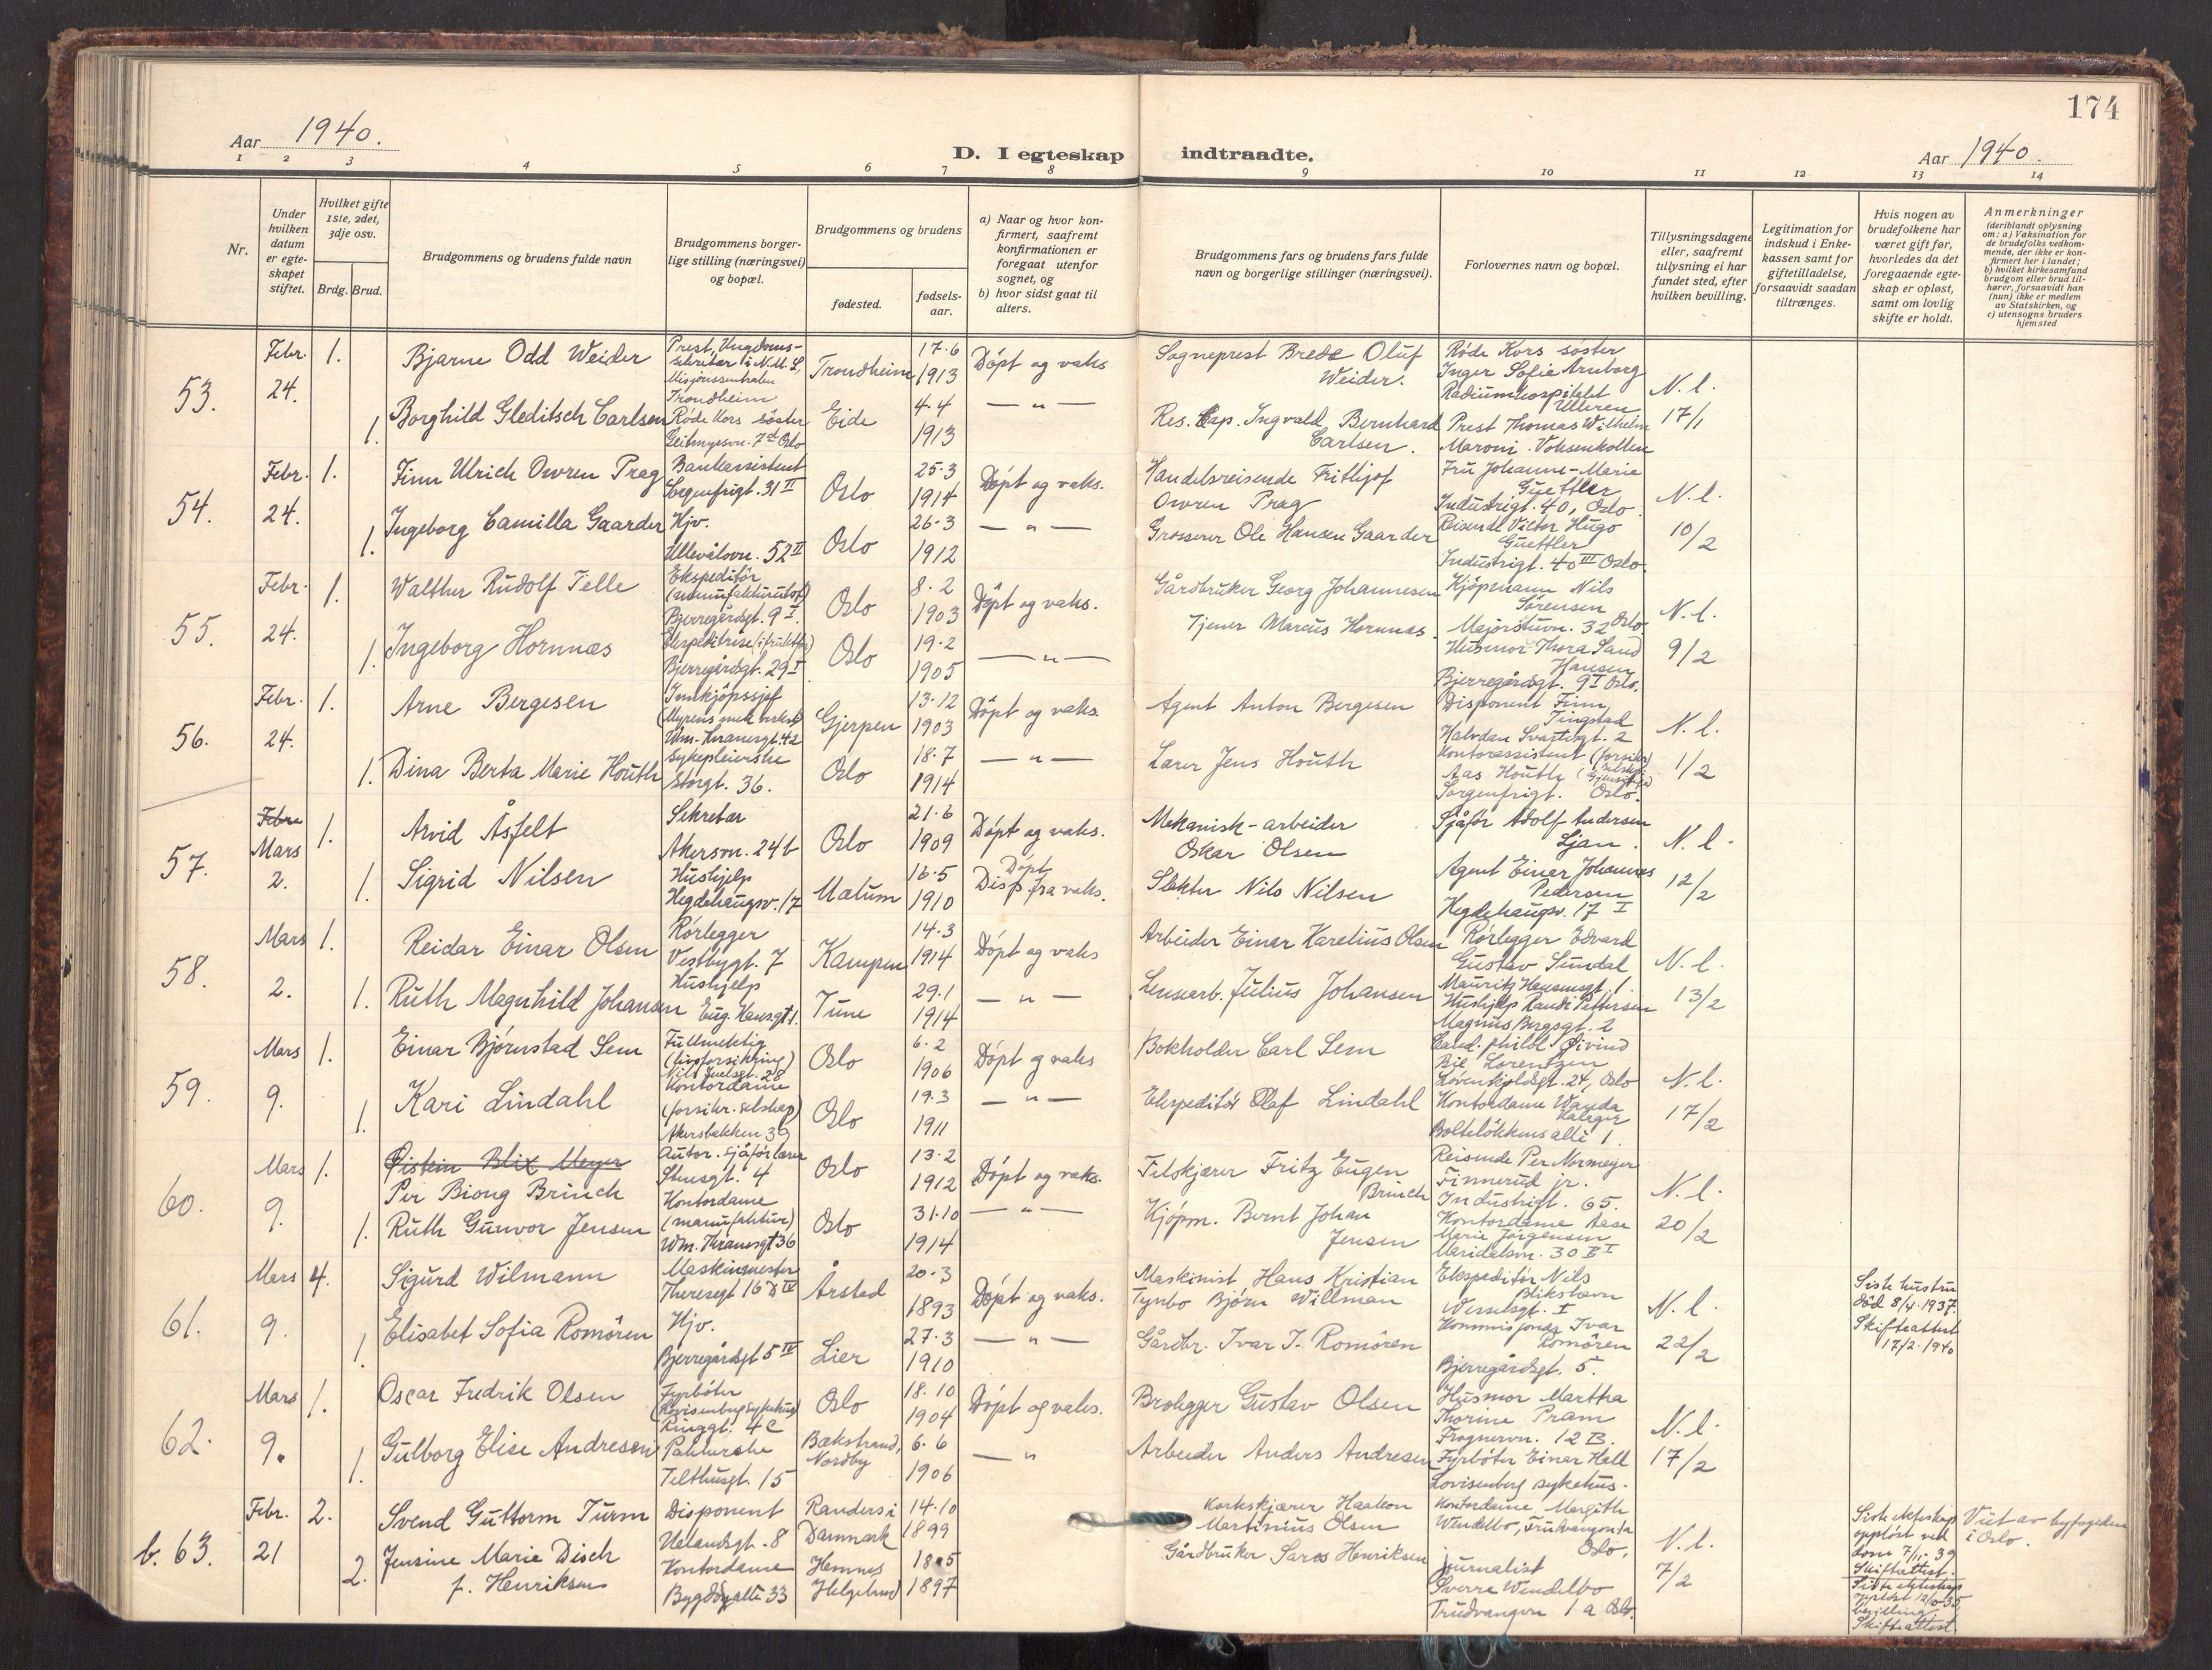 174
Aar 1940.
D. I egteskap indtraadte.
Aar 1940.
1 2 3 4 5 6 7 8 9 10 11 12 13 14
Nr.
Under hvilken datum er egteskapet stiftet.
Hvilket gifte 1ste, 2det, 3dje osv.
Brdg. Brud.
Brudgommens og brudens fulde navn
Brudgommens borgerlige stilling (næringsvei) og bopæl.
Brudgommens og brudens
fødested.
fødselsaar.
a) Naar og hvor konfirmert, saafremt konfirmationen er foregaat utenfor sognet, og
b) hvor sidst gaat til alters.
Brudgommens fars og brudens fars fulde navn og borgerlige stillinger (næringsvei).
Forlovernes navn og bopæl.
Tillysningsdagene eller, saafremt tillysning ei har fundet sted, efter hvilken bevilling.
Legitimation for indskud i Enkekassen samt for giftetilladelse, forsaavidt saadan tiltrænges.
Hvis nogen av brudefolkene har været gift før, hvorledes da det foregaaende egteskap er opløst, samt om lovlig skifte er holdt.
Anmerkninger
(deriblandt oplysning om: a) Vaksination for de brudefolks vedkommende, der ikke er konfirmert her i landet; b) hvilket kirkesamfund brudgom eller brud tilhører, forsaavidt han (hun) ikke er medlem av Statskirken, og c) utensogns bruders hjemsted
53.
Febr. 24.
1.
Bjarne Odd Weider
Prest, Ungdoms-
sekretær i N.M.S,
Misjonssentralen
Trondheim
Trondheim
17-6
1913
Döpt og vaks
Sogneprest Brede Oluf
Weider.
Røde Kors søster
Inger Sofie Arnborg
Radiumhospitalet
Ulleren
N. l.
17/1
1.
Borghild Gleditsch Carlsen
Røde Kors søster
Geitmyrsvn. 7d Oslo
Eide
4-4
1913
— " —
Res. Kap. Ingvald Bernhard
Carlsen.
Prest Thomas Wilhelm
Maroni. Voksenkollen
54.
Febr. 24.
1.
Finn Ulrich Owren Prag
Bankassistent
Sorgenfrigt. 31 II
Oslo
25-3
1914
Döpt og vaks.
Handelsreisende Frithjof
Owren Prag
Fru Johanne-Marie
Guettler
Industrigt. 40, Oslo.
N. l.
10/2
1.
Ingeborg Camilla Gaarder
Hjv.
Ullevålsvn. 52 II
Oslo
26-3
1912
— " —
Grosserer Ole Hansen Gaarder
Reisende Victor Hugo
Guettler
Industrigt. 40 III Oslo.
55.
Febr. 24.
1.
Walther Rudolf Telle
Ekspeditör
Bjerregårdsgt. 9 I
Oslo
8-2
1903
Döpt og vaks.
Gårdbruker Georg Johannesen
Kjöpmann Nils
Sørensen
Majorstuvn. 32 Oslo.
N. l.
9/2
1.
Ingeborg Hornnæs
Bjerregårdsgt. 29 I
Oslo
19-2
1905
— " —
Tjener Marcus Hornnæs.
Husmor Thora Sand
Hansen
Bjerregårdsgt. 9 I Oslo.
56.
Febr. 24.
1.
Arne Bergesen
Innkjöpssjef
(Myrens mek. verksted)
Wm. Thranesgt. 42
Gjerpen
13-12
1903
Döpt og vaks.
Agent Anton Bergesen
Disponent Finn
Tingstad
Halvdan Svartesgt. 2
N. l.
1/2
1.
Dina Berta Marie Houth
Sykepleierske
Storgt. 36.
Oslo
18-7
1914
— " —
Lærer Jens Houth
Kontorassistent
Aas Houth
Sorgenfrigt. Oslo.
57.
Febr.
Mars 2.
1.
Arvid Åsfelt
Sekretær
Akersvn. 24 b
Oslo
21-6
1909
Döpt og vaks.
Mekanisk-arbeider
Oskar Olsen
Sjåför Adolf Andersen
Ljan.
N. l.
12/2
1.
Sigrid Nilsen
Hushjelp
Hegdehaugsv. 17
Malum
16-5
1910
Döpt
Disp. fra vaks.
Slakter Nils Nilsen
Agent Einar Johannes
Pedersen
Hegdehaugsv. 17 I
58.
Mars 2.
1.
Reidar Einar Olsen
Rörlegger
Vestbygt. 7
Kampen
14-3
1914
Döpt og vaks
Arbeider Einar Karelius Olsen
Rörlegger Edvard
Gustav Sundal
Mauritz Hansensgt. 1.
N. l.
13/2
1.
Ruth Magnhild Johansen
Hushjelp
Tune
29-1
1914
— " —
Lensearb. Julius Johansen
Hushjelp Randi Pettersen
Magnus Bergsgt. 2
59.
Mars 9.
1.
Einar Björnstad Sem
Fullmektig
(livsforsikring)
Nils Juelsgt. 28
Oslo
6-2
1906
Döpt og vaks
Bokholder Carl Sem
Cand. philol Øivind
Bie Lorentzen
Løvenskjoldsgt. 24, Oslo
N. l.
17/2
1.
Kari Lindahl
Kontordame
(forsikr. selskap)
Akersbakken 39
Oslo
19-3
1911
— " —
Ekspeditör Olaf Lindahl
Kontordame Wanda
Bolteløkkens allé 1.
60.
Mars 9.
1.
Øistein Blix Meyer
Per Biong Brinch
Autor. sjåförlærer
Stensgt. 4
Oslo
13-2
1912
Döpt og vaks.
Filskjærer Fritz Eugen
Brinch
Reisende Per Normeyer
Finnerud jr.
Industrigt. 65.
N. l.
20/2
1.
Ruth Gunvor Jensen
Kontordame
(manufaktur)
Wm. Thranesgt 36
Oslo
31-10
1914
— " —
Kjöpm. Bernt Johan
Jensen
Kontordame Aase
Marie Jörgensen
Maridalsvn. 30
61.
Mars 9.
4.
Sigurd Wilmann
Maskinmester
Theresegt 16 IV
Årstad
20-3
1893
Döpt og vaks.
Maskinist Hans Kristian
Tyrbo Bjørn Willman
Ekspeditör Nils
Blikstavn
Wesselsgt. I
N. l.
22/2
Siste hustru
död 8/4-1937.
Skifteattest
17/2-1940
1.
Elisabet Sofia Romören
Hjv.
Bjerregårdsgt 5 IV
Lier
27-3
1910
— " —
Gårdbr. Ivar I. Romören
Kommisjonær Ivar
Romören
Bjerregårdsgt. 5.
62.
Mars 9.
1.
Oscar Fredrik Olsen
Fyrböter
(Lovisenberg sykehus)
Ringgt. 4C
Oslo
18-10
1904
Döpt og vaks.
Brolegger Gustav Olsen
Husmor Martha
Thorine Pram
Frognervn. 12 B.
N. l.
17/2
1.
Gulborg Elise Andresen
Pakkerske
Telthusgt. 15
Bækstrand,
Nordby
6-6
1906
— "
Arbeider Anders Andresen
Fyrböter Einar Hell
Lovisenberg sykehus.
b. 63.
Febr. 21
2.
Svend Guttorm Turm
Disponent
Uelandsgt. 8
Randers i
Danmark
14-10
1899
Korkskjærer Haakon
Martinius Olsen
Kontordame Margith
Wendelbo, Trudvangvn 1a
Oslo.
N. l.
7/2
Siste ekteskap
opplöst ved
dom 7/11-39
Skifteattest.
Viet av byfogden
i Oslo.
2.
Jensine Marie Disch
f. Henriksen
Kontordame
Bygdöyallé 33
Hemnes
Helgeland
18-5
1897
Gårdbruker Saras Henriksen
Journalist
Sverre Wendelbo
Trudvangvn 1 a Oslo.
Siste ekteskap
opplöst 12/10-35
bevilling.
Skifteattest.